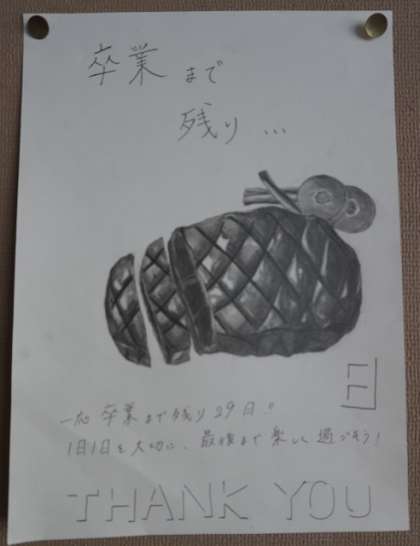 卒業まで
残り...
日
一応 卒業まで残り29日"
1日1日を大切に、最後まで楽しく過ごそう!
THANK YOU